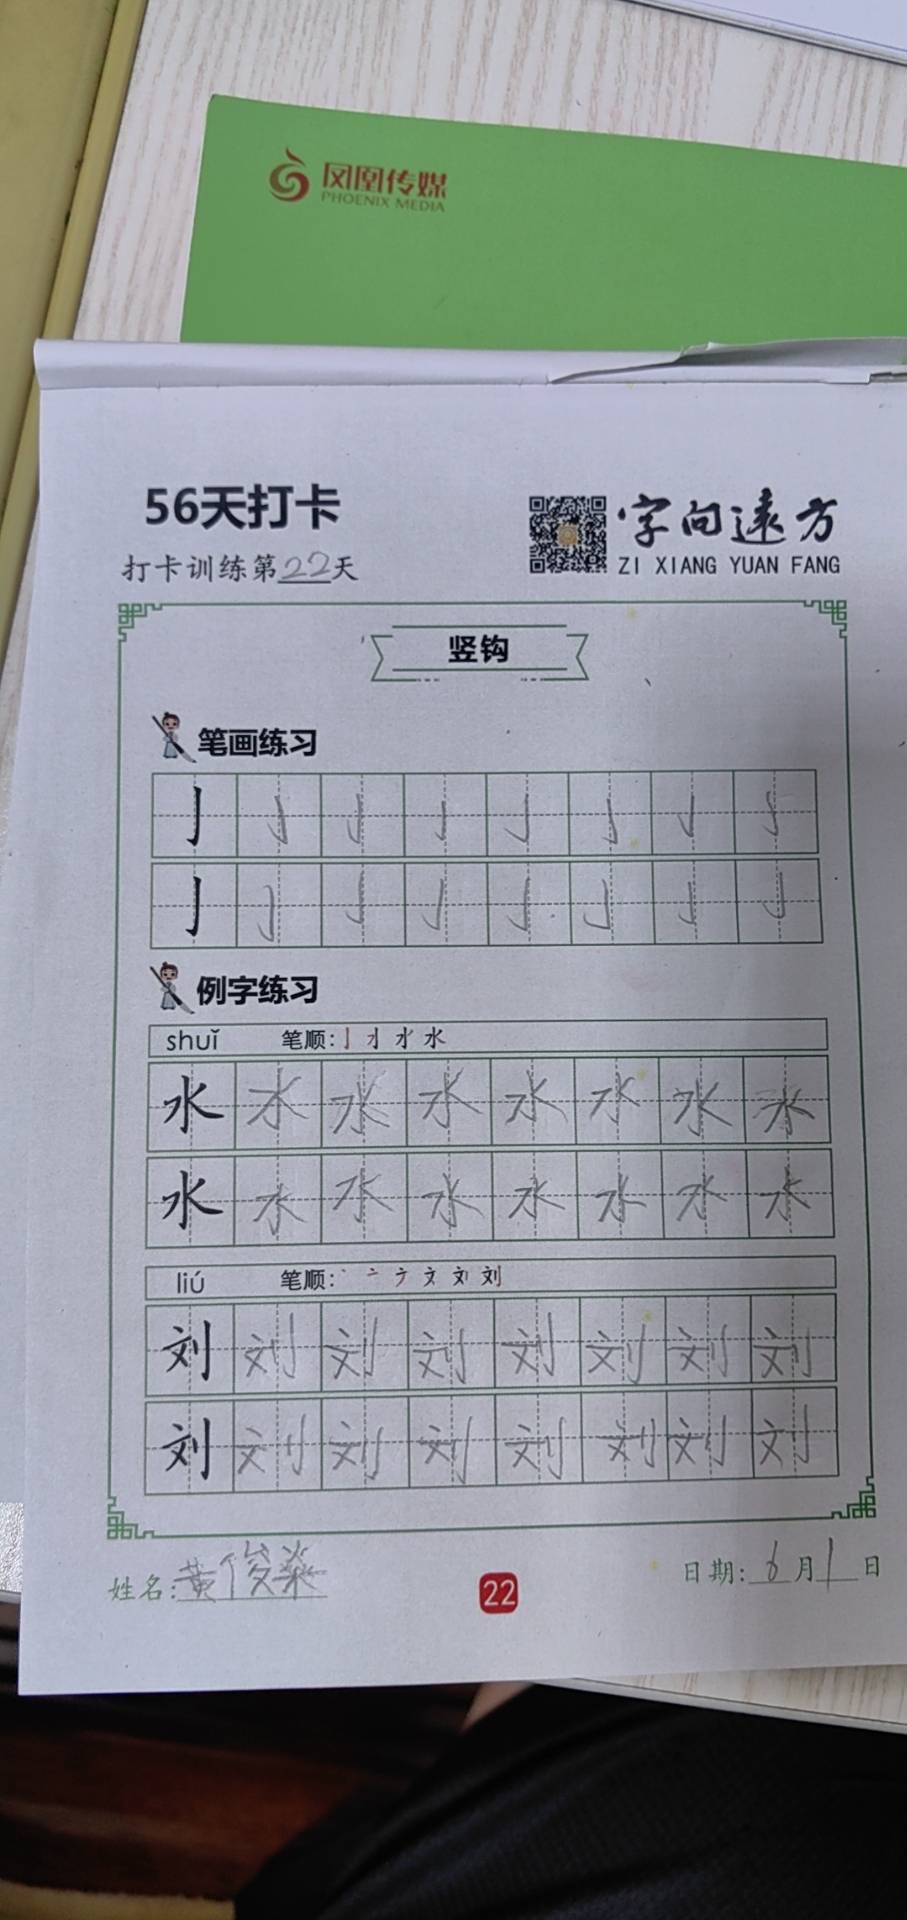 凤凰传媒
PHOENIX MEDIA
56天打卡
字向遠方
打卡训练第22天
ZI XIANG YUAN FANG
竖钩
笔画练习
亅 亅 亅 亅 亅 亅 亅 亅
亅 亅 亅 亅 亅 亅 亅 亅
例字练习
shuǐ 笔顺:
水 水 水 水 水 水 水 水
水 水 水 水 水 水 水 水
liú 笔顺:
刘 刘 刘 刘 刘 刘 刘 刘
刘 刘 刘 刘 刘 刘 刘 刘
姓名:黄俊燊
22
日期:6月1日